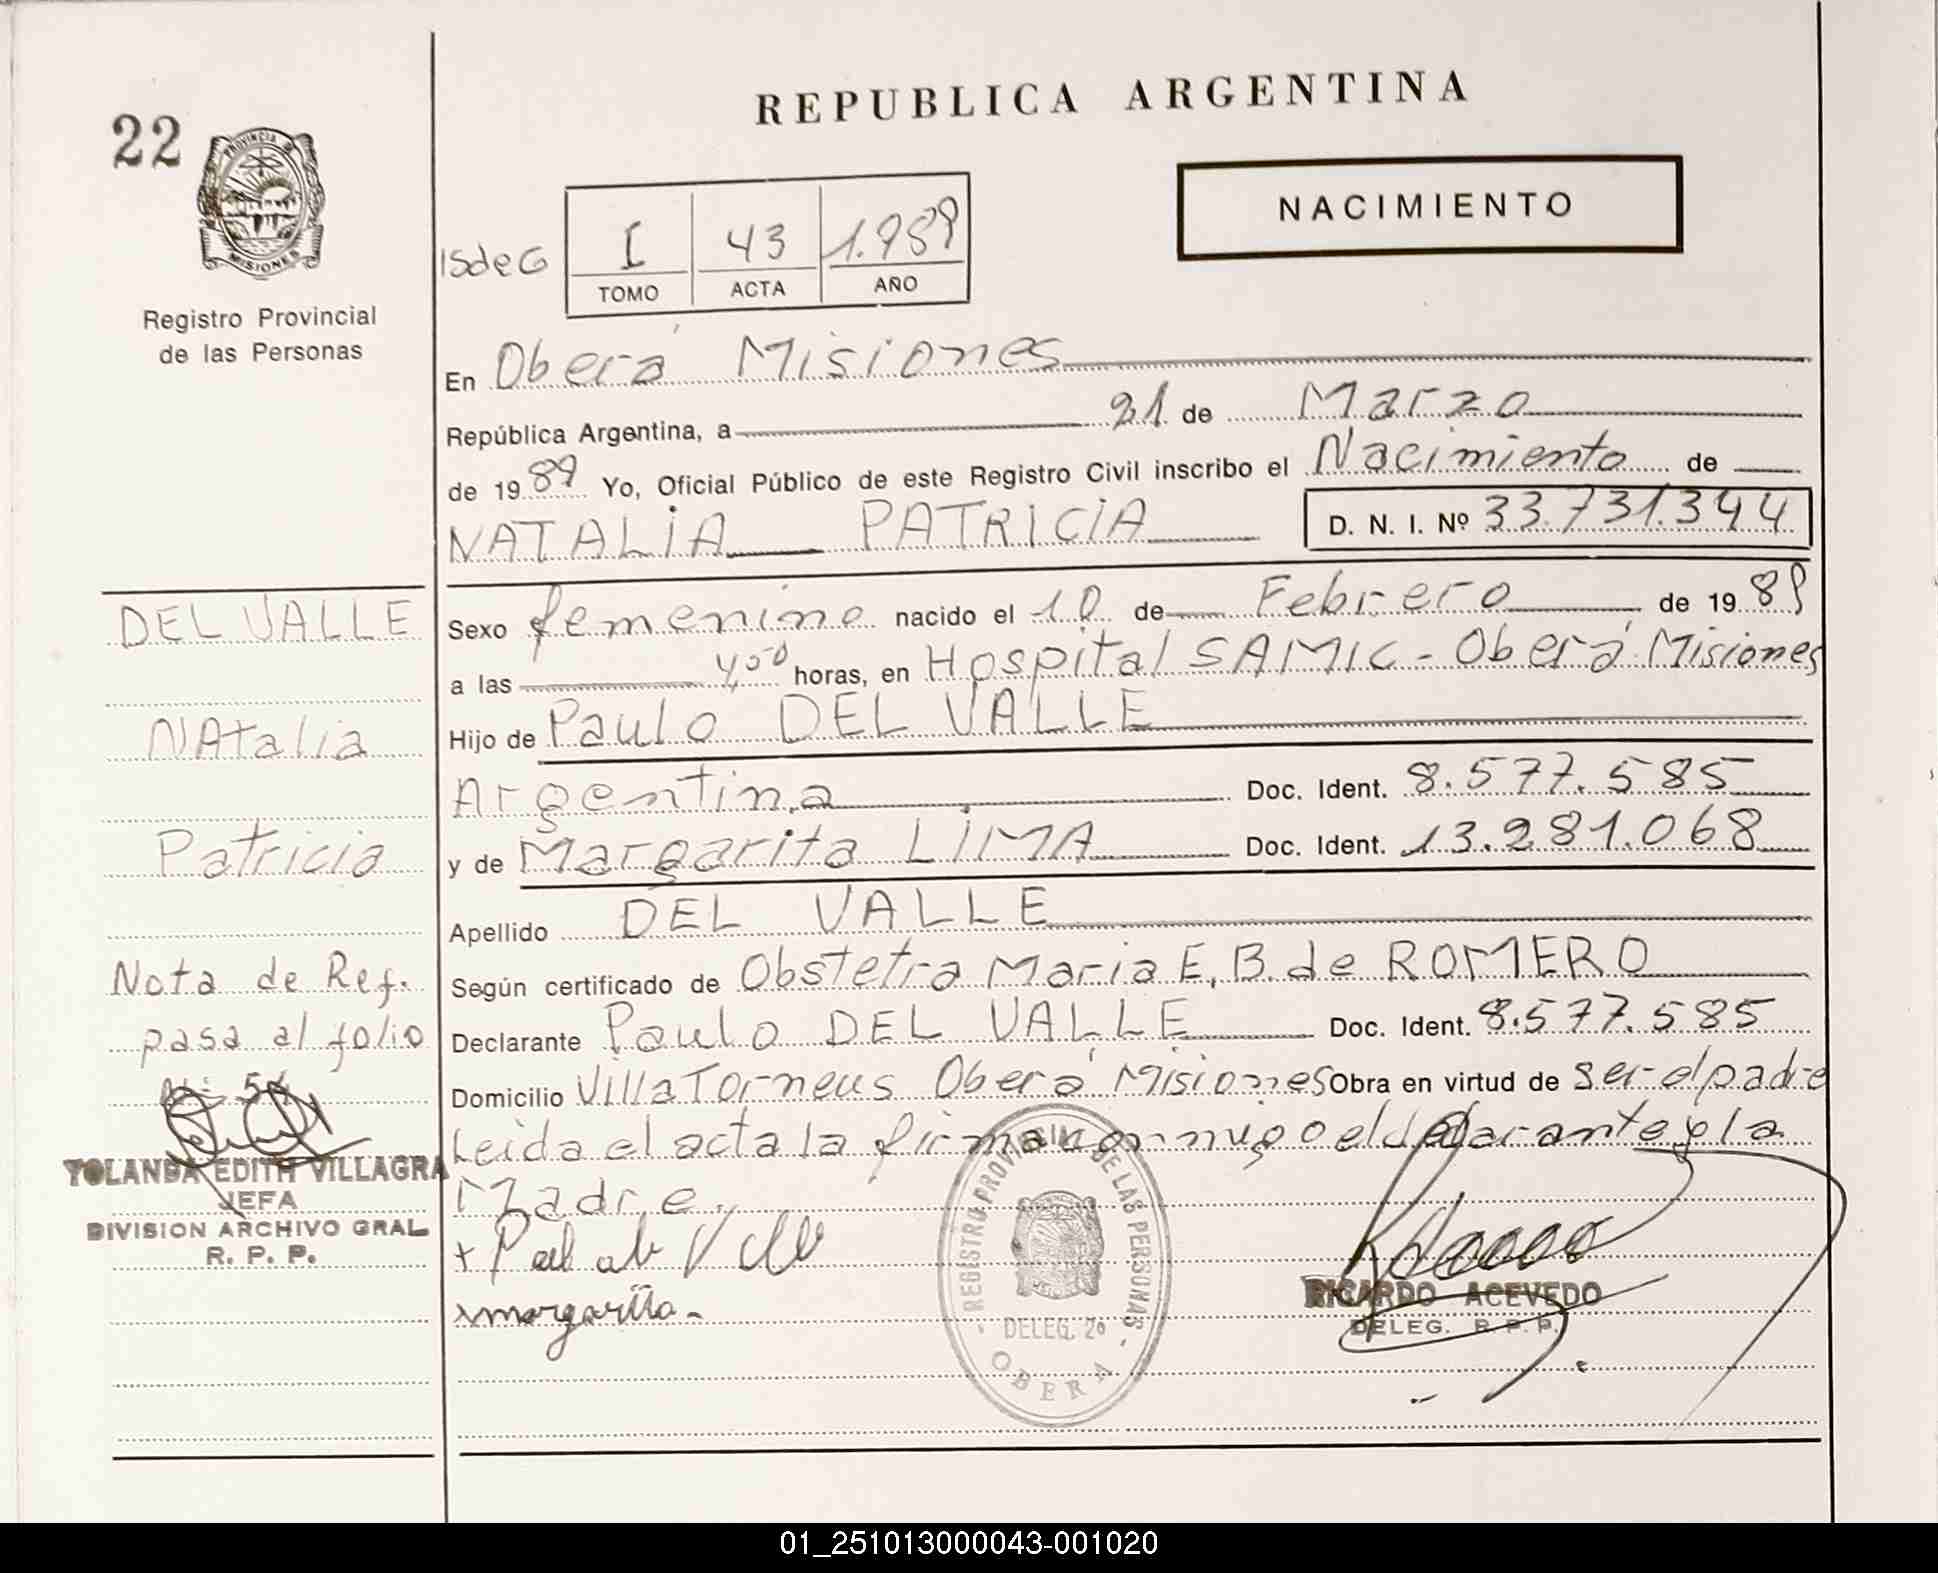 REPUBLICA ARGENTINA
22
PROVINCIA DE
MISIONES
Registro Provincial
de las Personas
NACIMIENTO
ISdeG
I 43 1.989
TOMO ACTA AÑO
En Oberá Misiones
República Argentina, a 21 de Marzo
de 1989 Yo, Oficial Público de este Registro Civil inscribo el Nacimiento de
NATALIA PATRICIA D. N. I. Nº 33.731.344
DEL VALLE
Natalia
Patricia
Sexo femenino nacido el 10 de Febrero de 1989
a las 4,00 horas, en Hospital SAMIC - Oberá Misiones
Hijo de Paulo DEL VALLE
Argentina Doc. Ident. 8.577.585
y de Margarita LIMA Doc. Ident. 13.281.068
Apellido DEL VALLE
Según certificado de Obstetra Maria E. B. de ROMERO
Declarante Paulo DEL VALLE Doc. Ident. 8.577.585
Domicilio Villa Torneus Oberá Misiones Obra en virtud de ser el padre
Leida el acta la firman conmigo el declarante y la
Madre.
Nota de Ref.
pasa al folio
YOLANDA EDITH VILLAGRA
JEFA
DIVISION ARCHIVO GRAL
R. P. P.
margarita
REGISTRO PROVINCIAL DE LAS PERSONAS
DELEG. 2º
OBERA
RICARDO ACEVEDO
DELEG. R. P. P.
01_251013000043-001020